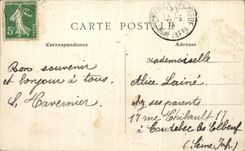 CARTE POSTALE
Correspondance
Adresse
Bon souvenir
et bonjour à tous.
S. Havernier
Mademoiselle
Alice Lainé
chez ses parents
17 rue Thibault 17
à Caudebec les Elbeuf
(Seine Infre)
5c